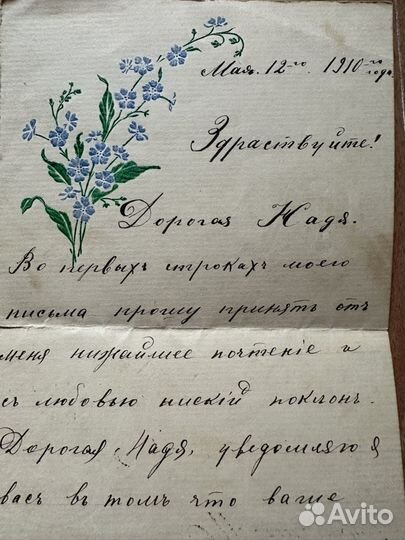 Мая. 12-го. 1910-го года.
Здраствуйте!
Дорогая Надя.
Во первыхъ строкахъ моего
письма прошу принять отъ
меня нижайшее почтеніе и
съ любовью нискій поклонъ.
Дорогая Надя, уведомляю я
васъ въ томъ что ваше
Avito